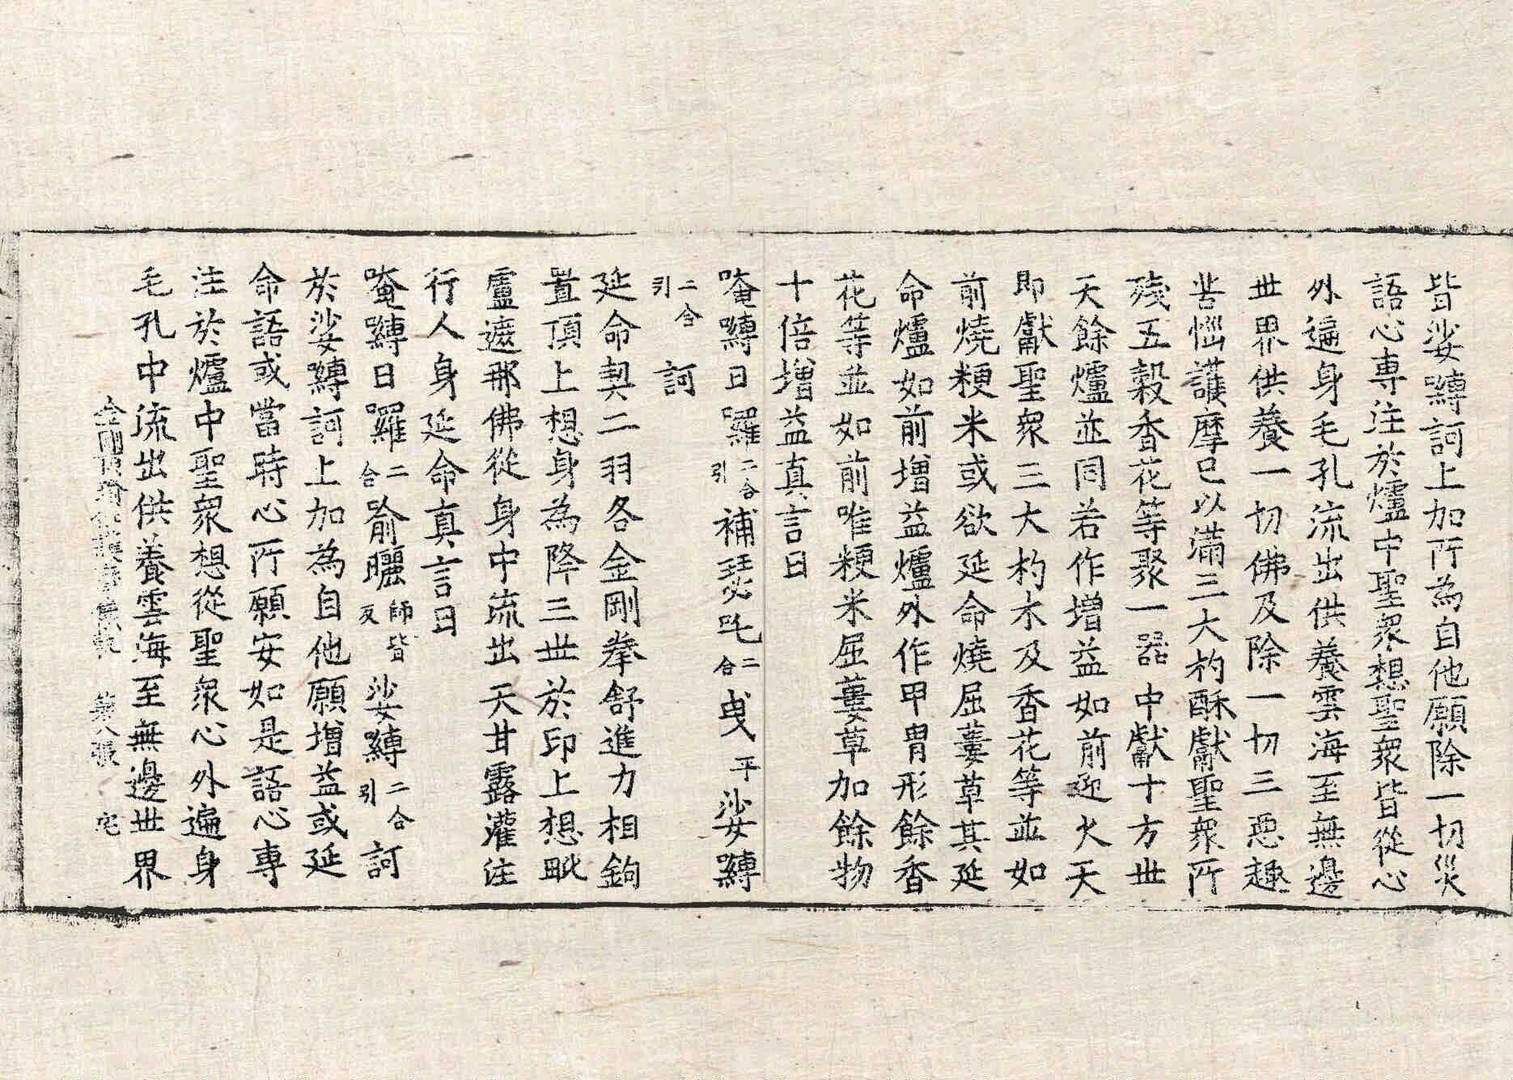 皆娑嚩訶上加所為自他願除一切災
語心専注於爐中聖衆想聖衆皆從心
外遍身毛孔流出供養雲海至無邊
世界供養一切佛及除一切三惡趣
苦惱護摩已以滿三大杓酥獻聖衆所
殘五穀香花等聚一器中獻十方世
天餘爐並同若作增益如前迎火天
即獻聖衆三大杓木及香花等並如
前燒粳米或欲延命燒屈蔞草其延
命爐如前增益爐外作甲冑形餘香
花等並如前唯粳米屈蔞草加餘物
十倍增益真言曰
唵嚩日囉二合引補瑟吒二合曳平娑嚩
二合引訶
延命契二羽各金剛拳舒進力相鉤
置頂上想身為降三世於印上想毗
盧遮那佛從身中流出天甘露灌注
行人身延命真言曰
唵嚩日囉二合喻曬師皆反娑嚩二合引訶
於娑嚩訶上加為自他願增益或延
命語或當時心所願安如是語心専
注於爐中聖衆想從聖衆心外遍身
毛孔中流出供養雲海至無邊世界
金剛頂瑜伽護摩儀軌 第八張 宅